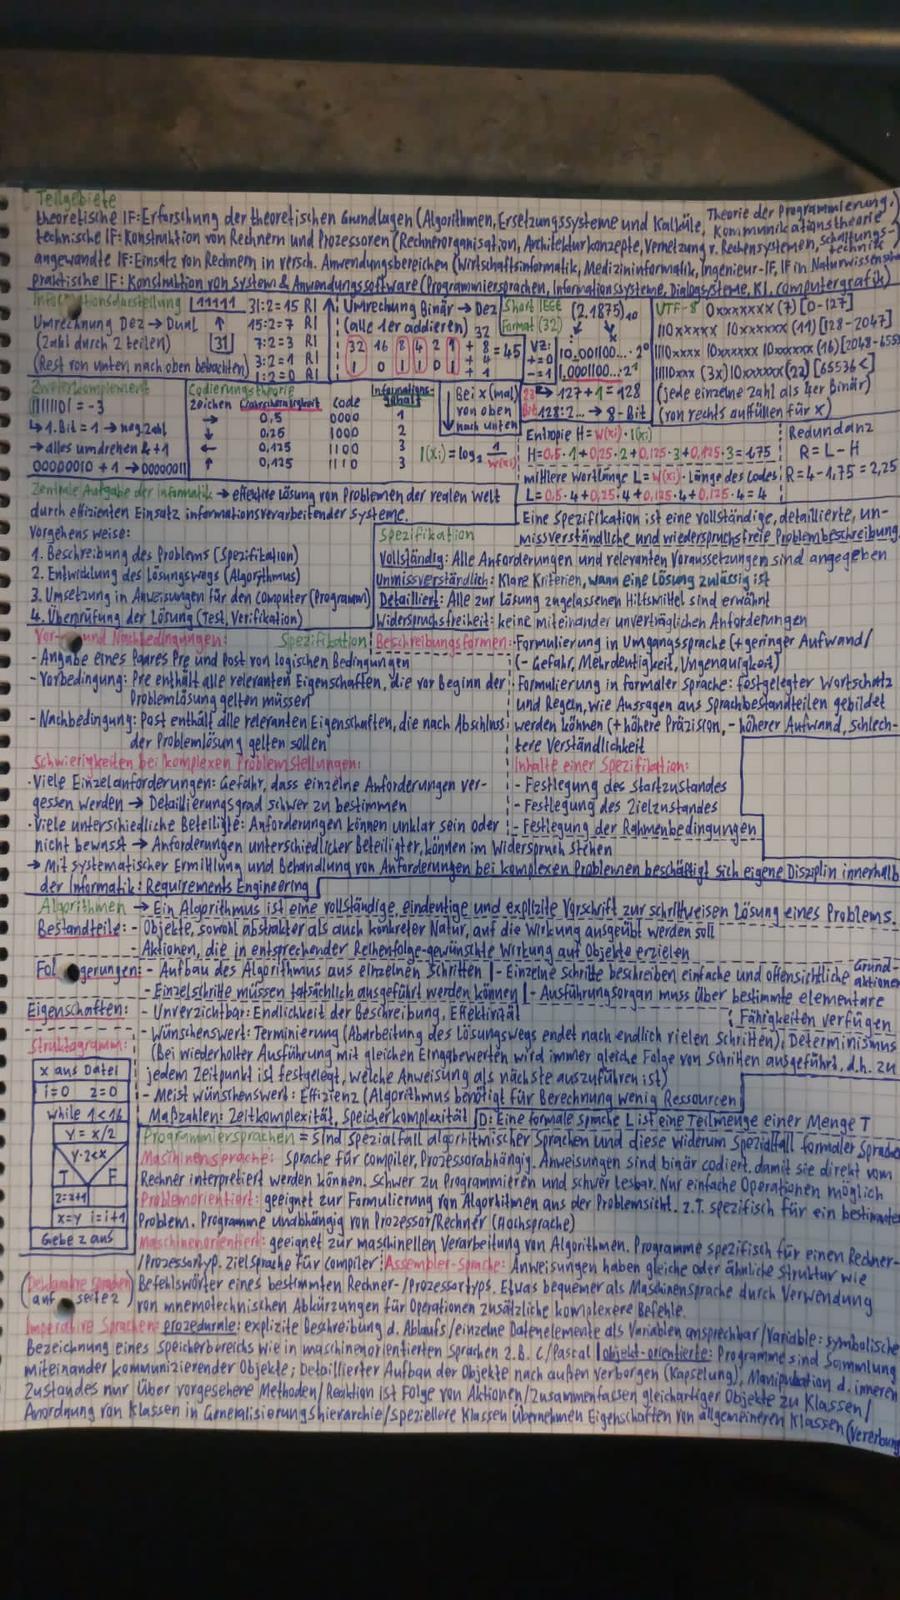 Teilgebiete
theoretische IF: Erforschung der theoretischen Grundlagen (Algorithmen, Ersetzungssysteme und Kalküle, Theorie der Programmierung, Kommunikationstheorie
technische IF: Konstruktion von Rechnern und Prozessoren (Rechnerorganisation, Architekturkonzepte, Vernetzung v. Rechensystemen, Schaltungstechnik
angewandte IF: Einsatz von Rechnern in versch. Anwendungsbereichen (Wirtschaftsinformatik, Medizininformatik, Ingenieur-IF, IF in
praktische IF: Konstruktion von System & Anwendungssoftware (Programmiersprachen, Informationssysteme, Dialogsysteme, KI, Computergrafik)
Informationsdarstellung
Umrechnung Dez → Dual
(Zahl durch 2 teilen)
(Rest von unten nach oben betrachten)
11111
31
31:2=15 R1
15:2=7 R1
7:2=3 R1
3:2=1 R1
1:2=0 R1
Umrechnung Binär → Dez
(alle 1er addieren)
32 16 8 4 2 1
1 0 1 1 0 1
32
+ 8
+ 4
+ 1
= 45
Short IEEE
Format (32)
(2,1875)10
VZ:
+=0
-=1
10,001100...·2⁰
1,0001100...·2¹
127+1=128
128:2... → 8-Bit
UTF-8 0xxxxxxx (7) [0-127]
110xxxxx 10xxxxxx (11) [128-2047]
1110xxxx 10xxxxxx 10xxxxxx (16)
11110xxx (3x) 10xxxxxx (22) [65536<]
(jede einzelne Zahl als 4er Binär)
(von rechts auffüllen für x)
Zweierkomplement
11111101 = -3
↳ 1. Bit = 1 → neg. Zahl
→ alles umdrehen & +1
00000010 + 1 → 00000011
Codierungstheorie
Zeichen Wahrscheinlichkeit Code Informationsgehalt
→ 0,5 0000 1
↓ 0,25 1000 2
← 0,125 1100 3
↑ 0,125 1110 3
I(xi) = log2 1/w(xi)
Bei x (mal)
von oben
nach unten
Entropie H = w(xi)·I(xi)
H=0,5·1+0,25·2+0,125·3+0,125·3=1,75
mittlere Wortlänge L=w(xi)·Länge des Codes
L=0,5·4+0,25·4+0,125·4+0,125·4=4
Redundanz
R = L-H
R=4-1,75=2,25
Zentrale Aufgabe der Informatik → effektive Lösung von Problemen der realen Welt
durch effizienten Einsatz informationsverarbeitender Systeme.
Vorgehensweise:
1. Beschreibung des Problems (Spezifikation)
2. Entwicklung des Lösungswegs (Algorythmus)
3. Umsetzung in Anweisungen für den Computer (Programm)
4. Überprüfung der Lösung (Test, Verifikation)
Eine Spezifikation ist eine vollständige, detaillierte, un-
missverständliche und wiederspruchsfreie Problembeschreibung.
Spezifikation
Vollständig: Alle Anforderungen und relevanten Voraussetzungen sind angegeben
Unmissverständlich: Klare Kriterien, wann eine Lösung zulässig ist
Detailiert: Alle zur Lösung zugelassenen Hilfsmittel sind erwähnt
Widerspruchsfreiheit: keine miteinander unverträglichen Anforderungen
Vor- und Nachbedingungen: Spezifikation
- Angabe eines Paares Pre und Post von logischen Bedingungen
- Vorbedingung: Pre enthält alle relevanten Eigenschaften, die vor Beginn der
Problemlösung gelten müssen
- Nachbedingung: Post enthält alle relevanten Eigenschaften, die nach Abschluss
der Problemlösung gelten sollen
Beschreibungsformen: - Formulierung in Umgangssprache (+geringer Aufwand/
(- Gefahr, Mehrdeutigkeit, Ungenauigkeit)
- Formulierung in formaler Sprache: festgelegter Wortschatz
und Regeln, wie Aussagen aus Sprachbestandteilen gebildet
werden können (+ höhere Präzision, - höherer Aufwand, schlech-
tere Verständlichkeit
Schwierigkeiten bei komplexen Problemstellungen:
· Viele Einzelanforderungen: Gefahr, dass einzelne Anforderungen ver-
gessen werden → Detaillierungsgrad schwer zu bestimmen
· Viele unterschiedliche Beteiligte: Anforderungen können unklar sein oder
nicht bewusst → Anforderungen unterschiedlicher Beteiligter, können im Widerspruch stehen
→ Mit systematischer Ermittlung und Behandlung von Anforderungen bei komplexen Problemen beschäftigt sich eigene Disziplin innerhalb
der Informatik: Requirements Engineering
Inhalte einer Spezifikation:
- Festlegung des Startzustandes
- Festlegung des Zielzustandes
- Festlegung der Rahmenbedingungen
Algorithmen → Ein Algorithmus ist eine vollständige, eindeutige und explizite Vorschrift zur schrittweisen Lösung eines Problems.
Bestandteile: - Objekte, sowohl abstrakter als auch konkreter Natur, auf die Wirkung ausgeübt werden soll
- Aktionen, die in entsprechender Reihenfolge gewünschte Wirkung auf Objekte erzielen
- Aufbau des Algorithmus aus einzelnen Schritten | - Einzelne Schritte beschreiben einfache und offensichtliche Grundaktionen
- Einzelschritte müssen tatsächlich ausgeführt werden können | - Ausführungsorgan muss über bestimmte elementare Fähigkeiten verfügen
Eigenschaften: - Unverzichtbar: Endlichkeit der Beschreibung, Effektivität
- Wünschenswert: Terminierung (Abarbeitung des Lösungswegs endet nach endlich vielen Schritten), Determinismus
(Bei wiederholter Ausführung mit gleichen Eingabewerten wird immer gleiche Folge von Schritten ausgeführt, d.h. zu
jedem Zeitpunkt ist festgelegt, welche Anweisung als nächste auszuführen ist)
- Meist wünschenswert: Effizienz (Algorithmus benötigt für Berechnung wenig Ressourcen)
Maßzahlen: Zeitkomplexität, Speicherkomplexität
D: Eine formale Sprache L ist eine Teilmenge einer Menge T
Struktogramm:
x aus Datei
i=0 z=0
while i<16
y = x/2
y·2<x
T F
z=z+1
x=y i=i+1
Gebe z aus
Programmiersprachen = sind Spezialfall algorithmischer Sprachen und diese widerum Spezialfall formaler Sprachen
Maschinensprache: Sprache für Compiler, Prozessorabhängig. Anweisungen sind binär codiert, damit sie direkt vom
Rechner interpretiert werden können. Schwer zu Programmieren und schwer lesbar. Nur einfache Operationen möglich
Problemorientiert: geeignet zur Formulierung von Algorithmen aus der Problemsicht. z.T. spezifisch für ein bestimmtes
Problem. Programme unabhängig von Prozessor/Rechner (Hochsprache)
Maschinenorientiert: geeignet zur maschinellen Verarbeitung von Algorithmen. Programme spezifisch für einen Rechner-
/Prozessortyp. Zielsprache für Compiler Assembler-Sprache: Anweisungen haben gleiche oder ähnliche Struktur wie
Befehlswörter eines bestimmten Rechner-/Prozessortyps. Etwas bequemer als Maschinensprache durch Verwendung
von mnemotechnischen Abkürzungen für Operationen zusätzliche komplexere Befehle.
Deklarative Sprachen
(auf Seite 2)
Imperative Sprachen: prozedurale: explizite Beschreibung d. Ablaufs/einzelne Datenelemente als Variablen ansprechbar/Variable: symbolische
Bezeichnung eines Speicherbereichs wie in maschinenorientierten Sprachen z.B. C/Pascal objekt-orientierte: Programme sind Sammlung
miteinander kommunizierender Objekte; Detaillierter Aufbau der Objekte nach außen verborgen (Kapselung), Manipulation d. inneren
Zustandes nur über vorgesehene Methoden/Reaktion ist Folge von Aktionen/zusammenfassen gleichartiger Objekte zu Klassen/
Anordnung von Klassen in Generalisierungshierarchie/speziellere Klassen übernehmen Eigenschaften von allgemeineren Klassen (Vererbung